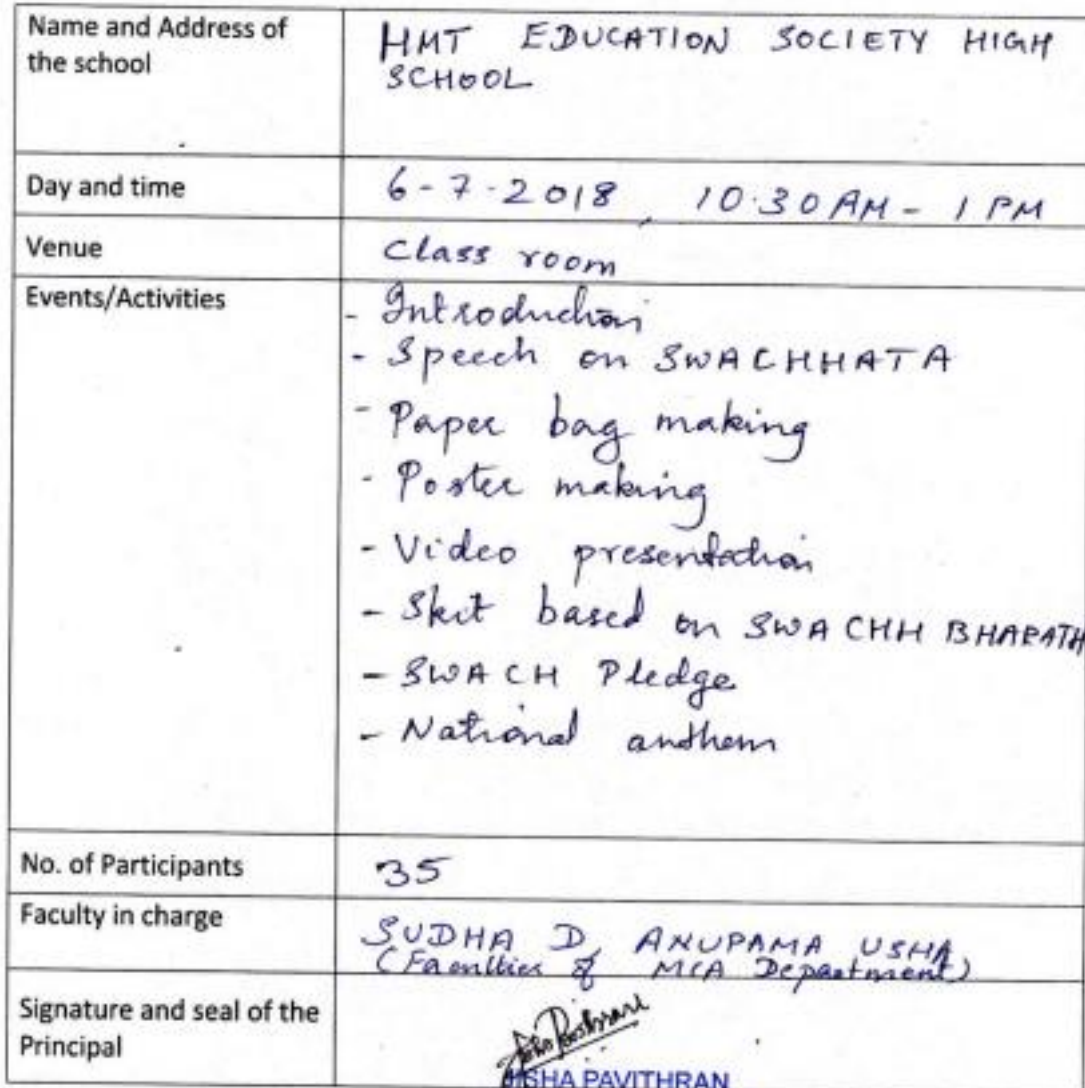 Name and Address of
the school
HMT EDUCATION SOCIETY HIGH
SCHOOL
Day and time
6-7-2018, 10.30AM - 1 PM
Venue
Class room
Events/Activities
- Introduction
- Speech on SWACHHATA
- Paper bag making
- Poster making
- Video presentation
- Skit based on SWACHH BHARATH
- SWACH Pledge
- National anthem
No. of Participants
35
Faculty in charge
SUDHA D, ANUPAMA USHA
(Faculties of MCA Department)
Signature and seal of the
Principal
JISHA PAVITHRAN